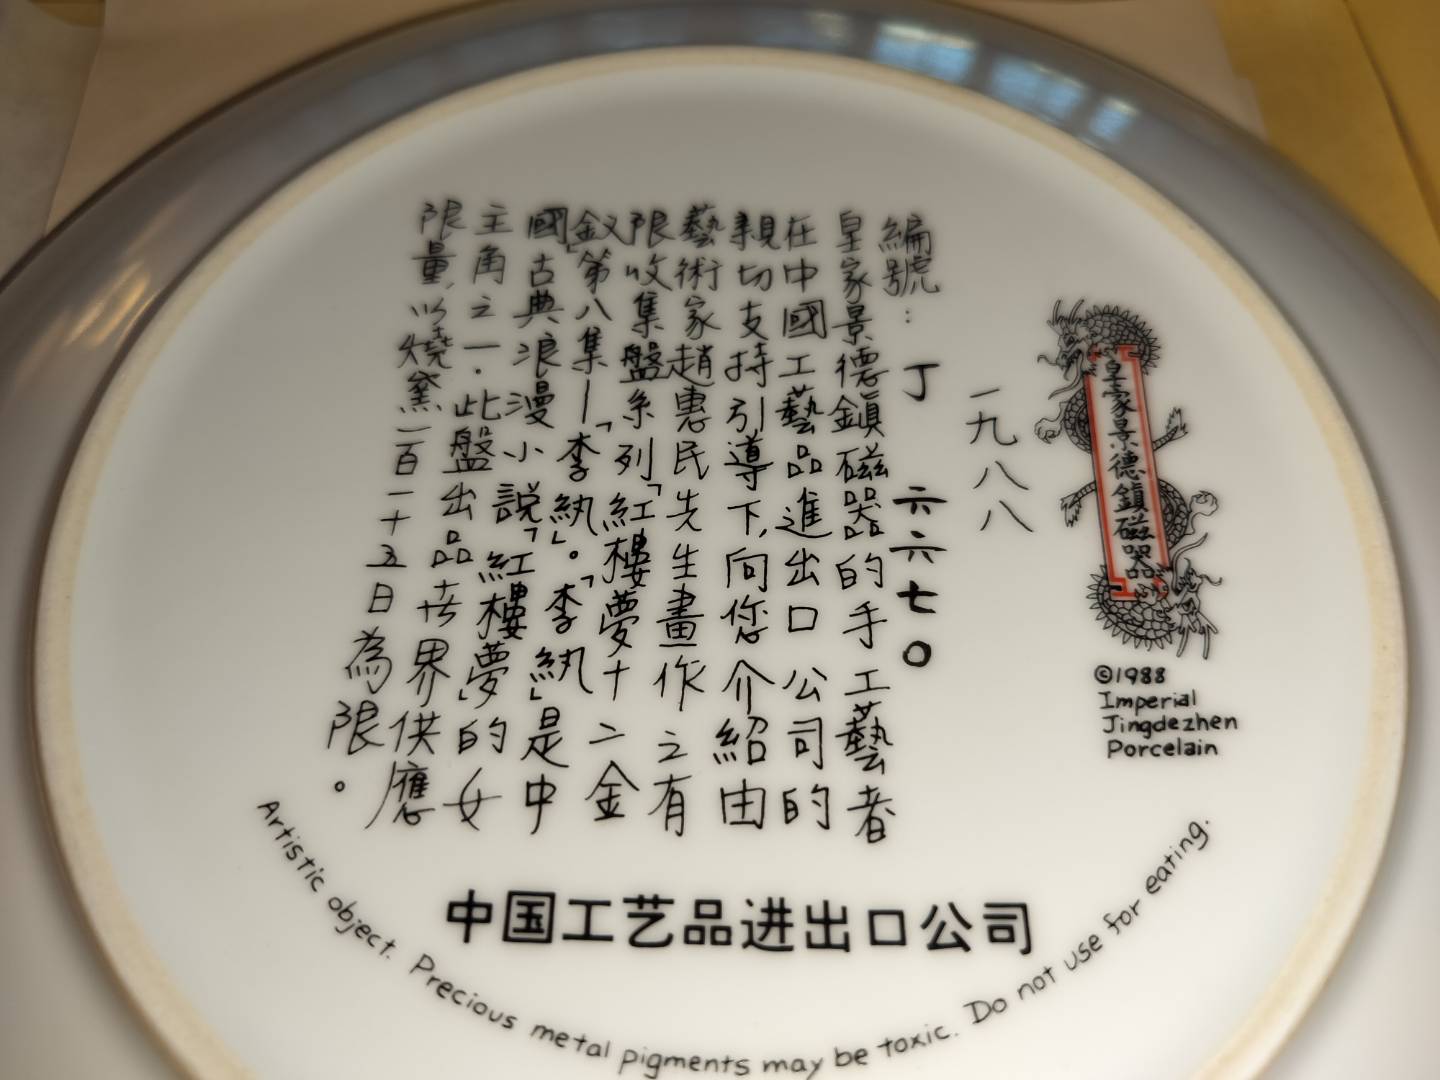 皇家景德鎮磁器
©1988
Imperial
Jingdezhen
Porcelain
一九八八
編號：丁 六六七〇
皇家景德鎮磁器的手工藝者
在中國工藝品進出口公司的
親切支持引導下，向您介紹由
藝術家趙惠民先生畫作之有
限收集盤系列「紅樓夢十二金
釵」第八集—「李紈」。「李紈」是中
國古典浪漫小說「紅樓夢」的女
主角之一．此盤出品世界供應
限量，以燒窯一百一十五日為限。
中国工艺品进出口公司
Artistic object. Precious metal pigments may be toxic. Do not use for eating.